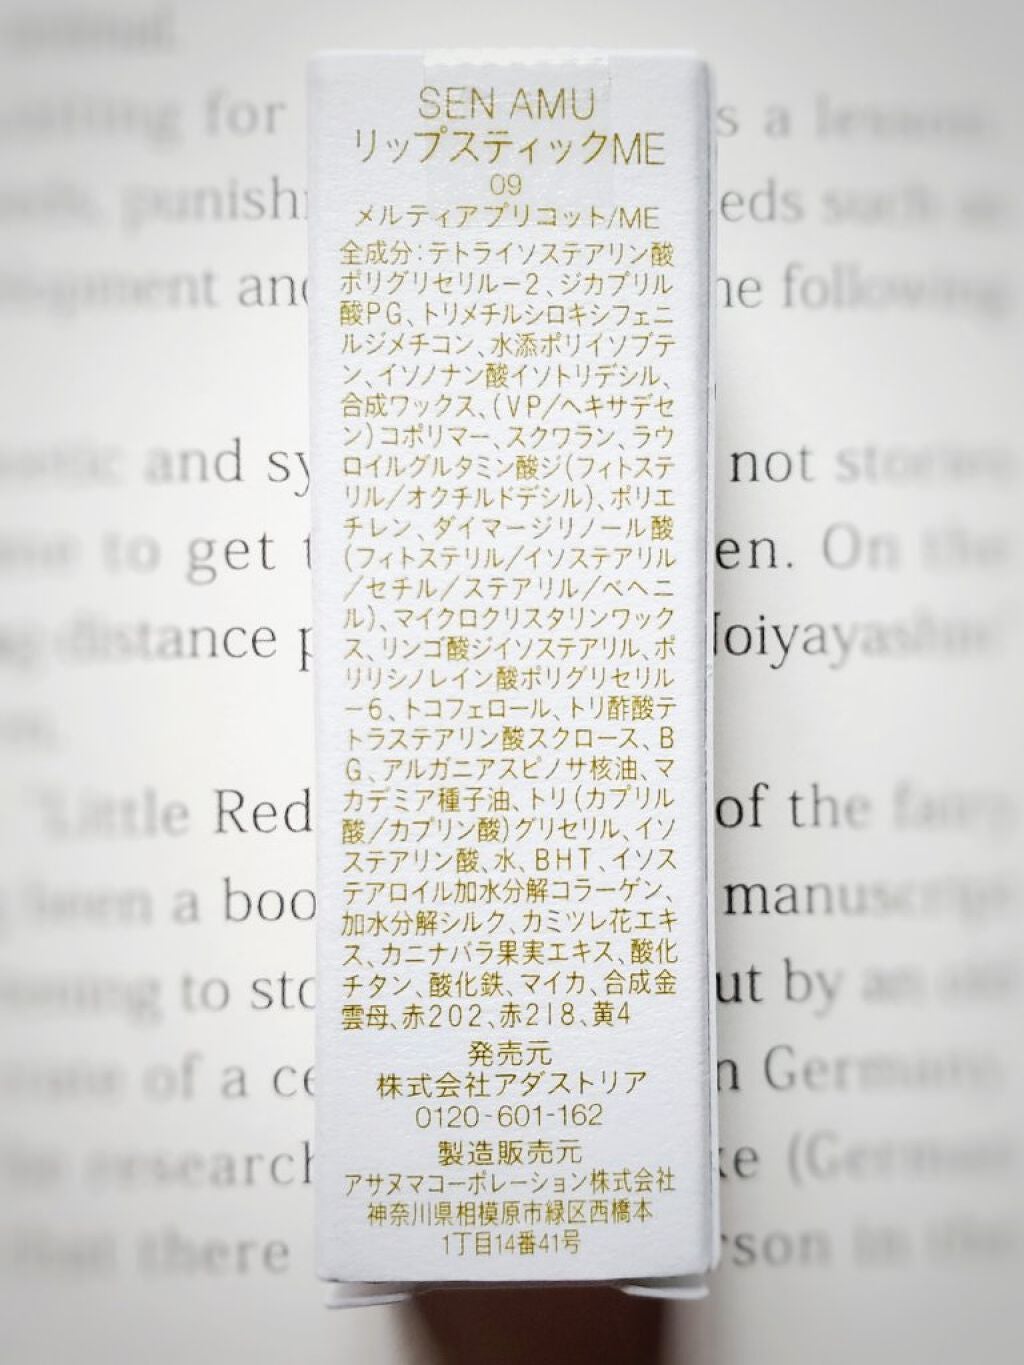 SEN AMU
リップスティックME
09
メルティアプリコット/ME
全成分:テトライソステアリン酸
ポリグリセリル-2、ジカプリル
酸PG、トリメチルシロキシフェニ
ルジメチコン、水添ポリイソブテ
ン、イソノナン酸イソトリデシル、
合成ワックス、(VP/ヘキサデセ
ン)コポリマー、スクワラン、ラウ
ロイルグルタミン酸ジ(フィトステ
リル/オクチルドデシル)、ポリエ
チレン、ダイマージリノール酸
(フィトステリル/イソステアリル
/セチル/ステアリル/ベヘニ
ル)、マイクロクリスタリンワック
ス、リンゴ酸ジイソステアリル、ポ
リリシノレイン酸ポリグリセリル
-6、トコフェロール、トリ酢酸テ
トラステアリン酸スクロース、B
G、アルガニアスピノサ核油、マ
カデミア種子油、トリ(カプリル
酸/カプリン酸)グリセリル、イソ
ステアリン酸、水、BHT、イソス
テアロイル加水分解コラーゲン、
加水分解シルク、カミツレ花エキ
ス、カニナバラ果実エキス、酸化
チタン、酸化鉄、マイカ、合成金
雲母、赤202、赤218、黄4
発売元
株式会社アダストリア
0120-601-162
製造販売元
アサヌマコーポレーション株式会社
神奈川県相模原市緑区西橋本
1丁目14番41号
for s a lesson,
punish eds such
and he following
and sy not stories
to get en. On the
distance oiyayashi
Little Red of the fairy
been a boo manuscript
to sto ut by an
of a ce n German
research ke (German
that there rson in